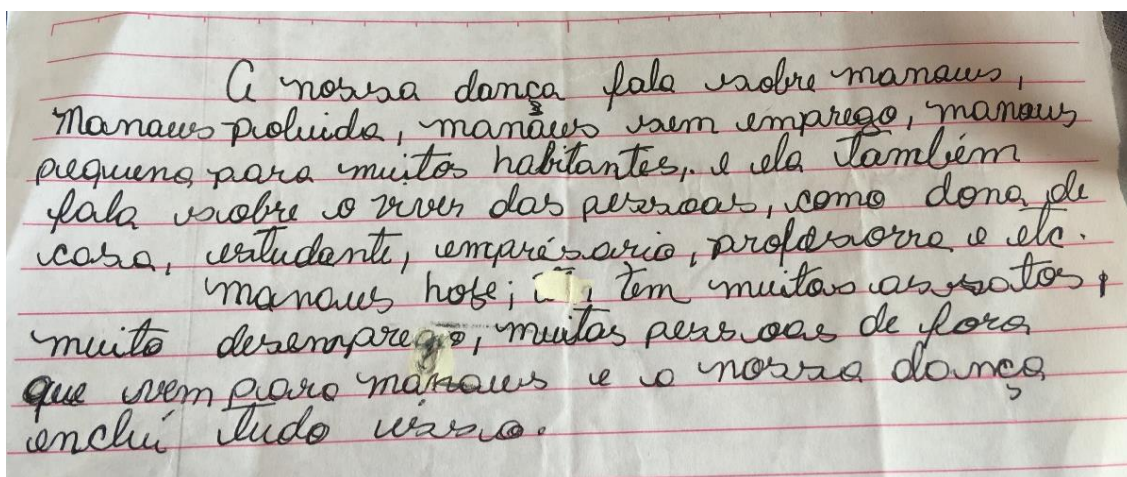 A nossa dança fala sobre manaus,
Manaus poluida, manaus sem emprego, manaus
pequena para muitos habitantes, e ela também
fala sobre o viver das pessoas, como dona de
casa, estudante, emprésario, profesorra e etc.
manaus hoje; tem muitos assatos,
muito desemprego, muitas pessoas de fora
que vem para manaus e a nossa dança
enclui tudo isso.